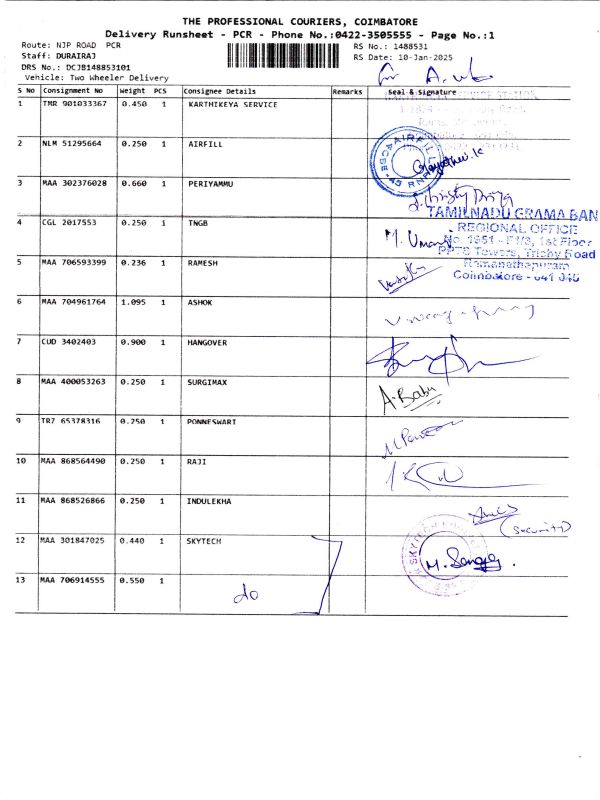 THE PROFESSIONAL COURIERS, COIMBATORE
Delivery Runsheet - PCR - Phone No.:0422-3505555 - Page No.:1
Route: NJP ROAD PCR
RS No.: 1488531
Staff: DURAIRAJ
RS Date: 10-Jan-2025
DRS No.: DCJB148853101
Vehicle: Two Wheeler Delivery
S No Consignment No Weight PCS Consignee Details Remarks Seal & Signature
1 TMR 901033367 0.450 1 KARTHIKEYA SERVICE
2 NLM 51295664 0.250 1 AIRFILL
3 MAA 302376028 0.660 1 PERIYAMMU
TAMILNADU GRAMA BAN
4 CGL 2017553 0.250 1 TNGB
REGIONAL OFFICE
1st Floor
PPTC Towers, Trichy Road
5 MAA 706593399 0.236 1 RAMESH
Ramanathapuram
Coimbatore - 641 045
6 MAA 704961764 1.095 1 ASHOK
7 CUD 3402403 0.900 1 HANGOVER
8 MAA 400053263 0.250 1 SURGIMAX
A.Babu
9 TR7 65378316 0.250 1 PONNESWARI
10 MAA 868564490 0.250 1 RAJI
11 MAA 868526866 0.250 1 INDULEKHA
(Security)
12 MAA 301847025 0.440 1 SKYTECH
13 MAA 706914555 0.550 1
do